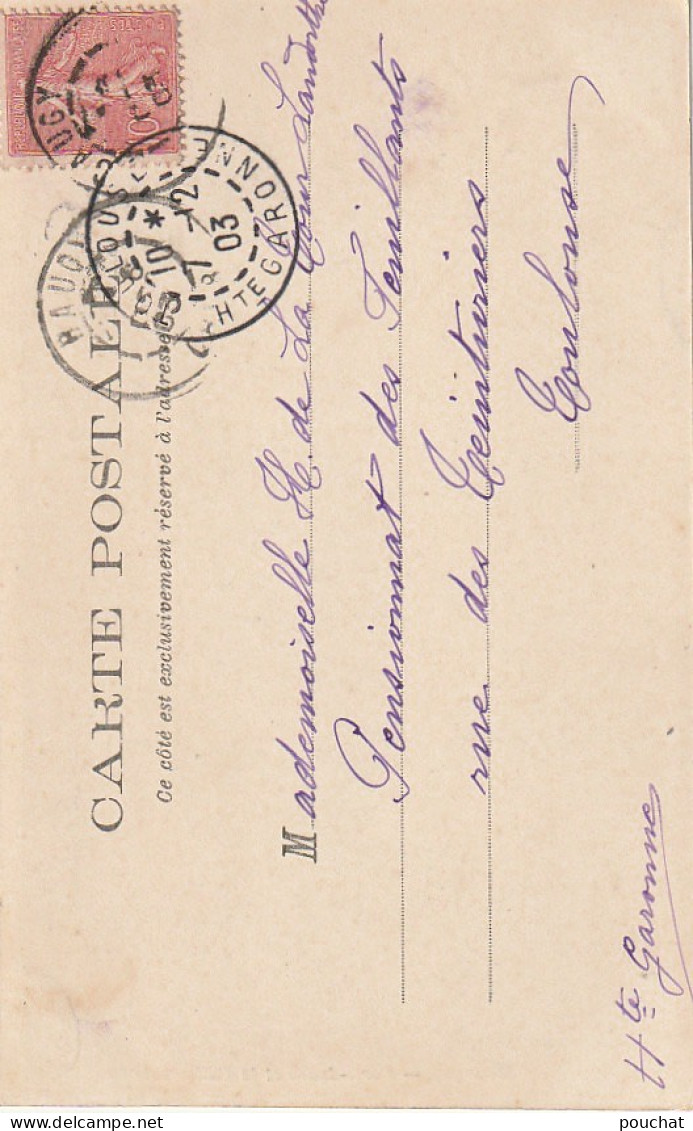 CARTE POSTALE
Ce côté est exclusivement réservé à l'adresse
Mademoiselle H. de La Cour Landorthe
Pensionnat des Feuillants
rue des Teinturiers
Toulouse
Hte Garonne
TOULOUSE
HTE GARONNE
7 12
03
BAUGY
BAUGY
REPUBLIQUE FRANÇAISE
POSTES
10
pouchat